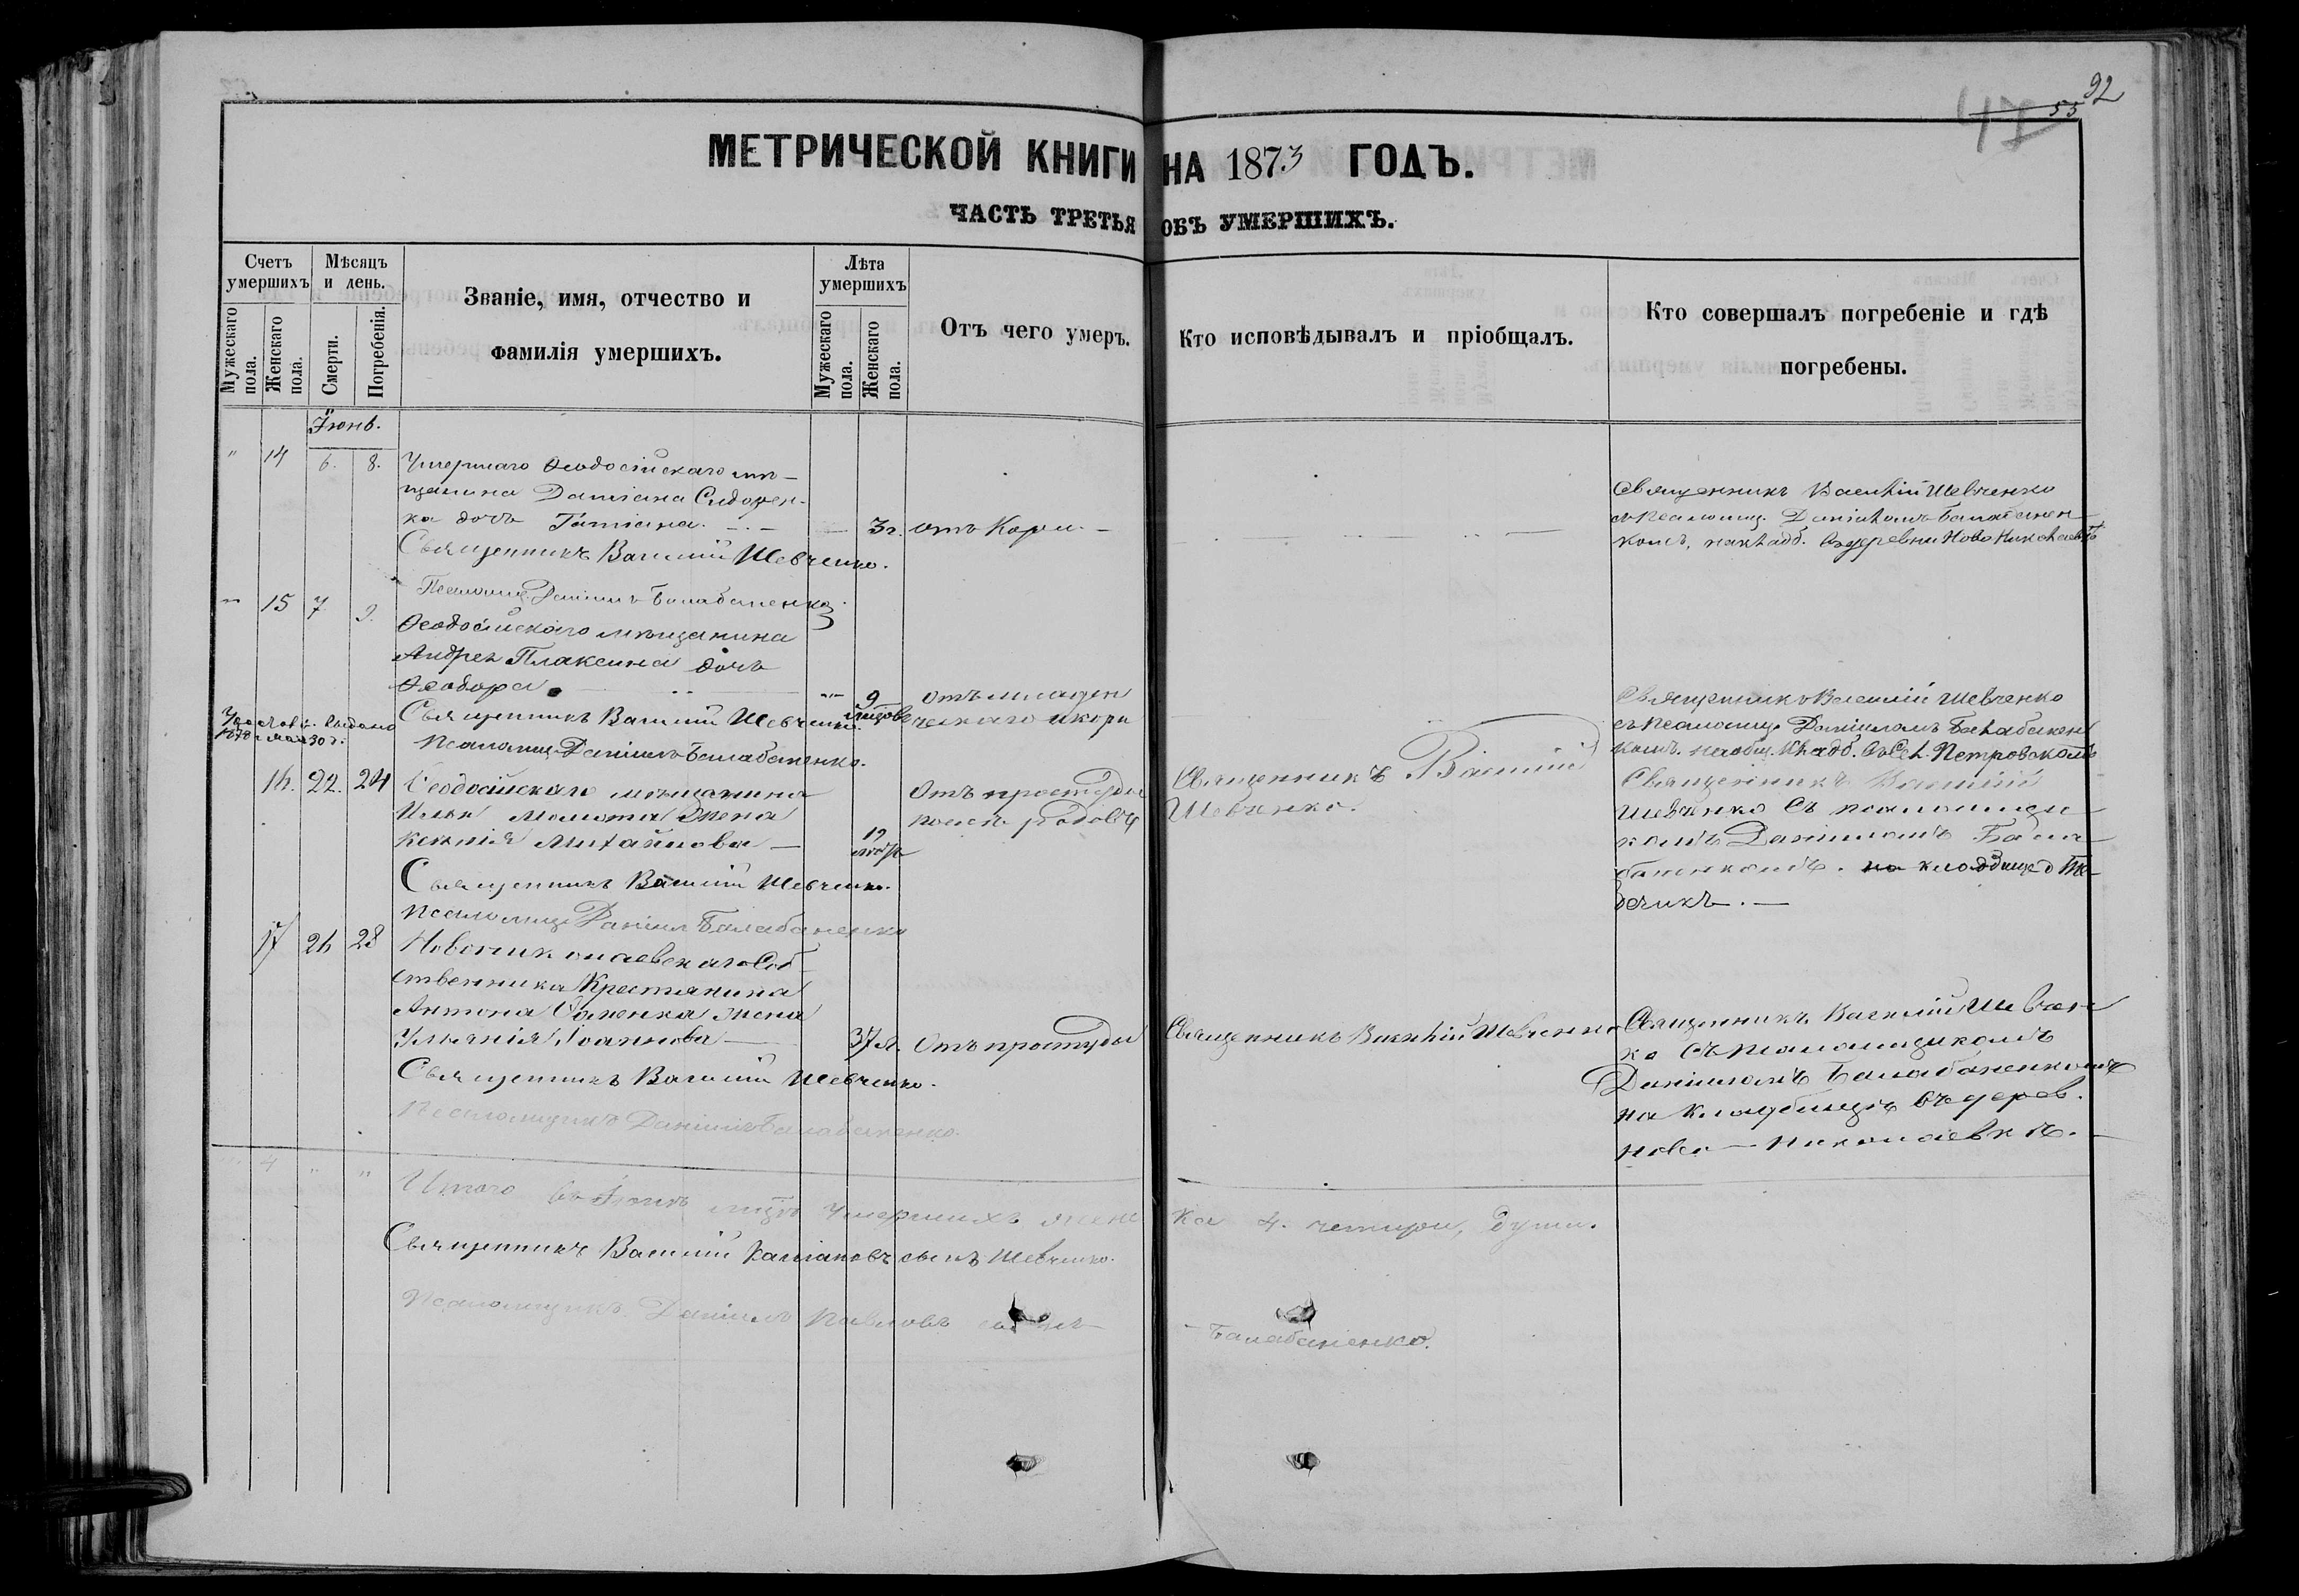 92
55
МЕТРИЧЕСКОЙ КНИГИ НА 1873 ГОДЪ.
ЧАСТЬ ТРЕТЬЯ ОБЪ УМЕРШИХЪ.
Счетъ умершихъ
Мѣсяцъ и день.
Званіе, имя, отчество и фамилія умершихъ.
Лѣта умершихъ
Отъ чего умеръ.
Кто исповѣдывалъ и пріобщалъ.
Кто совершалъ погребеніе и гдѣ погребены.
Мужескаго пола.
Женскаго пола.
Смерти.
Погребенія.
Мужескаго пола.
Женскаго пола.
Іюнь.
" 14 6. 8.
Умершаго Ѳеодосійскаго мѣ-
щанина Даміана Сидорен-
ка дочь Татіана. 3 г. отъ Кори.
Священникъ Василій Шевченко.
Псаломщ. Даніилъ Балабаненко
Священникъ Василій Шевченко
съ псаломщ. Даніиломъ Балабанен
комъ, на клад. въ деревни Ново Николаевкѣ
" 15 7 9.
Ѳеодосійскаго мѣщанина
Андрея Плаксина дочь
Ѳеодора 9 отъ младен
Священникъ Василій Шевченко. ческаго и кори
Псаломщ. Даніилъ Балабаненко.
Священникъ Василій Шевченко
съ псаломщ. Даніиломъ Балабанен
комъ. на общ. клад. въ сел. Петровскомъ
16. 22. 24
Ѳеодосійскаго мѣщанина
Ильи жена
Ксенія Михайлова 19
Отъ простуды
послѣ родовъ
Священникъ Василій
Шевченко.
Священникъ Василій Шевченко.
Псаломщ. Даніилъ Балабаненко
Священникъ Василій
Шевченко съ псаломщи
комъ Даніиломъ Бала
баненкомъ. на кладбище
17 26 28
Новониколаевскаго Соб
ственника Крестянина
Антона жена
Ульянія Іоаннова 37 л. Отъ простуды
Священникъ Василій Шевченко
Священникъ Василій Шевченко.
Псаломщикъ Даніилъ Балабаненко.
Священникъ Василій Шевчен
ко съ псаломщикомъ
Даніиломъ Балабаненкомъ
на кладбищѣ въ дерев.
Ново-Николаевкѣ.
4 " "
Итого въ Іюнѣ умершихъ женс ка 4. четыри, души.
Священникъ Василій Касіановъ сынъ Шевченко.
Псаломщикъ Даніилъ Павловъ сынъ Балабаненко.